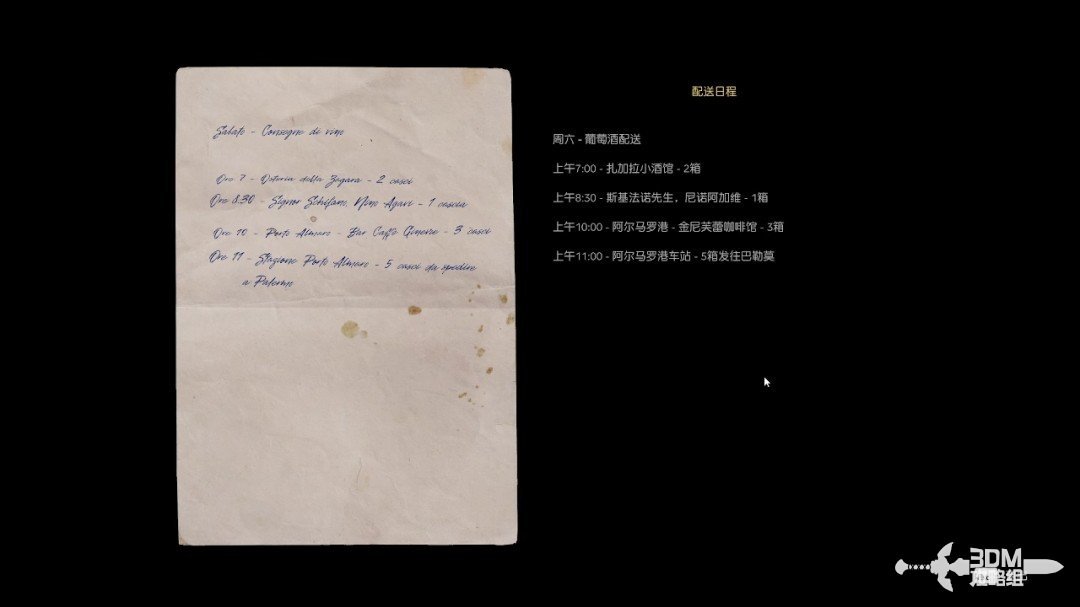 Sabato - Consegne di vino
Ore 7 - Osteria della Zagara - 2 casse
Ore 8.30 - Signor Schifano, Nino Agavi - 1 cassa
Ore 10 - Porto Almaro - Bar Caffè Ginevre - 3 casse
Ore 11 - Stazione Porto Almaro - 5 casse da spedire
a Palermo
配送日程
周六 - 葡萄酒配送
上午7:00 - 扎加拉小酒馆 - 2箱
上午8:30 - 斯基法诺先生，尼诺阿加维 - 1箱
上午10:00 - 阿尔马罗港 - 金尼芙蕾咖啡馆 - 3箱
上午11:00 - 阿尔马罗港车站 - 5箱发往巴勒莫
3DM
攻略组